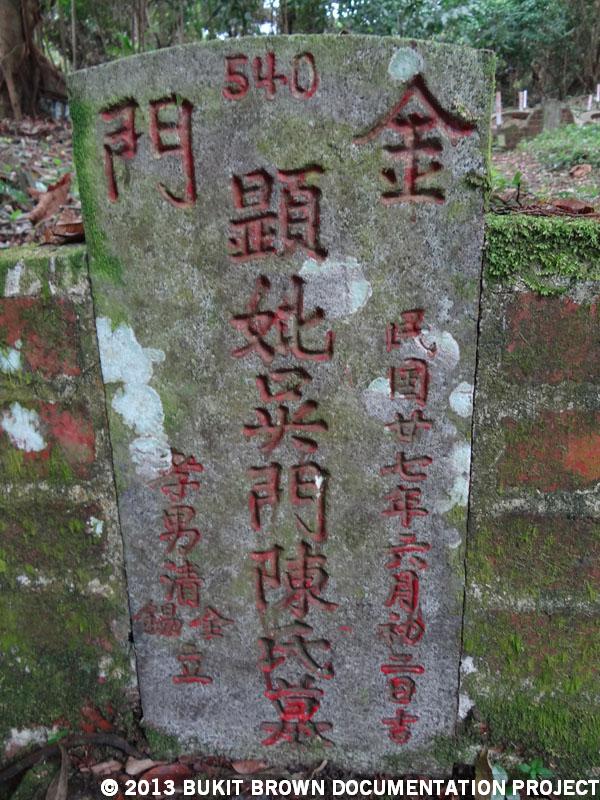 540
金門
民国廿七年六月初二日吉
顕妣吳門陳氏墓
孝男清錫仝立
© 2013 BUKIT BROWN DOCUMENTATION PROJECT